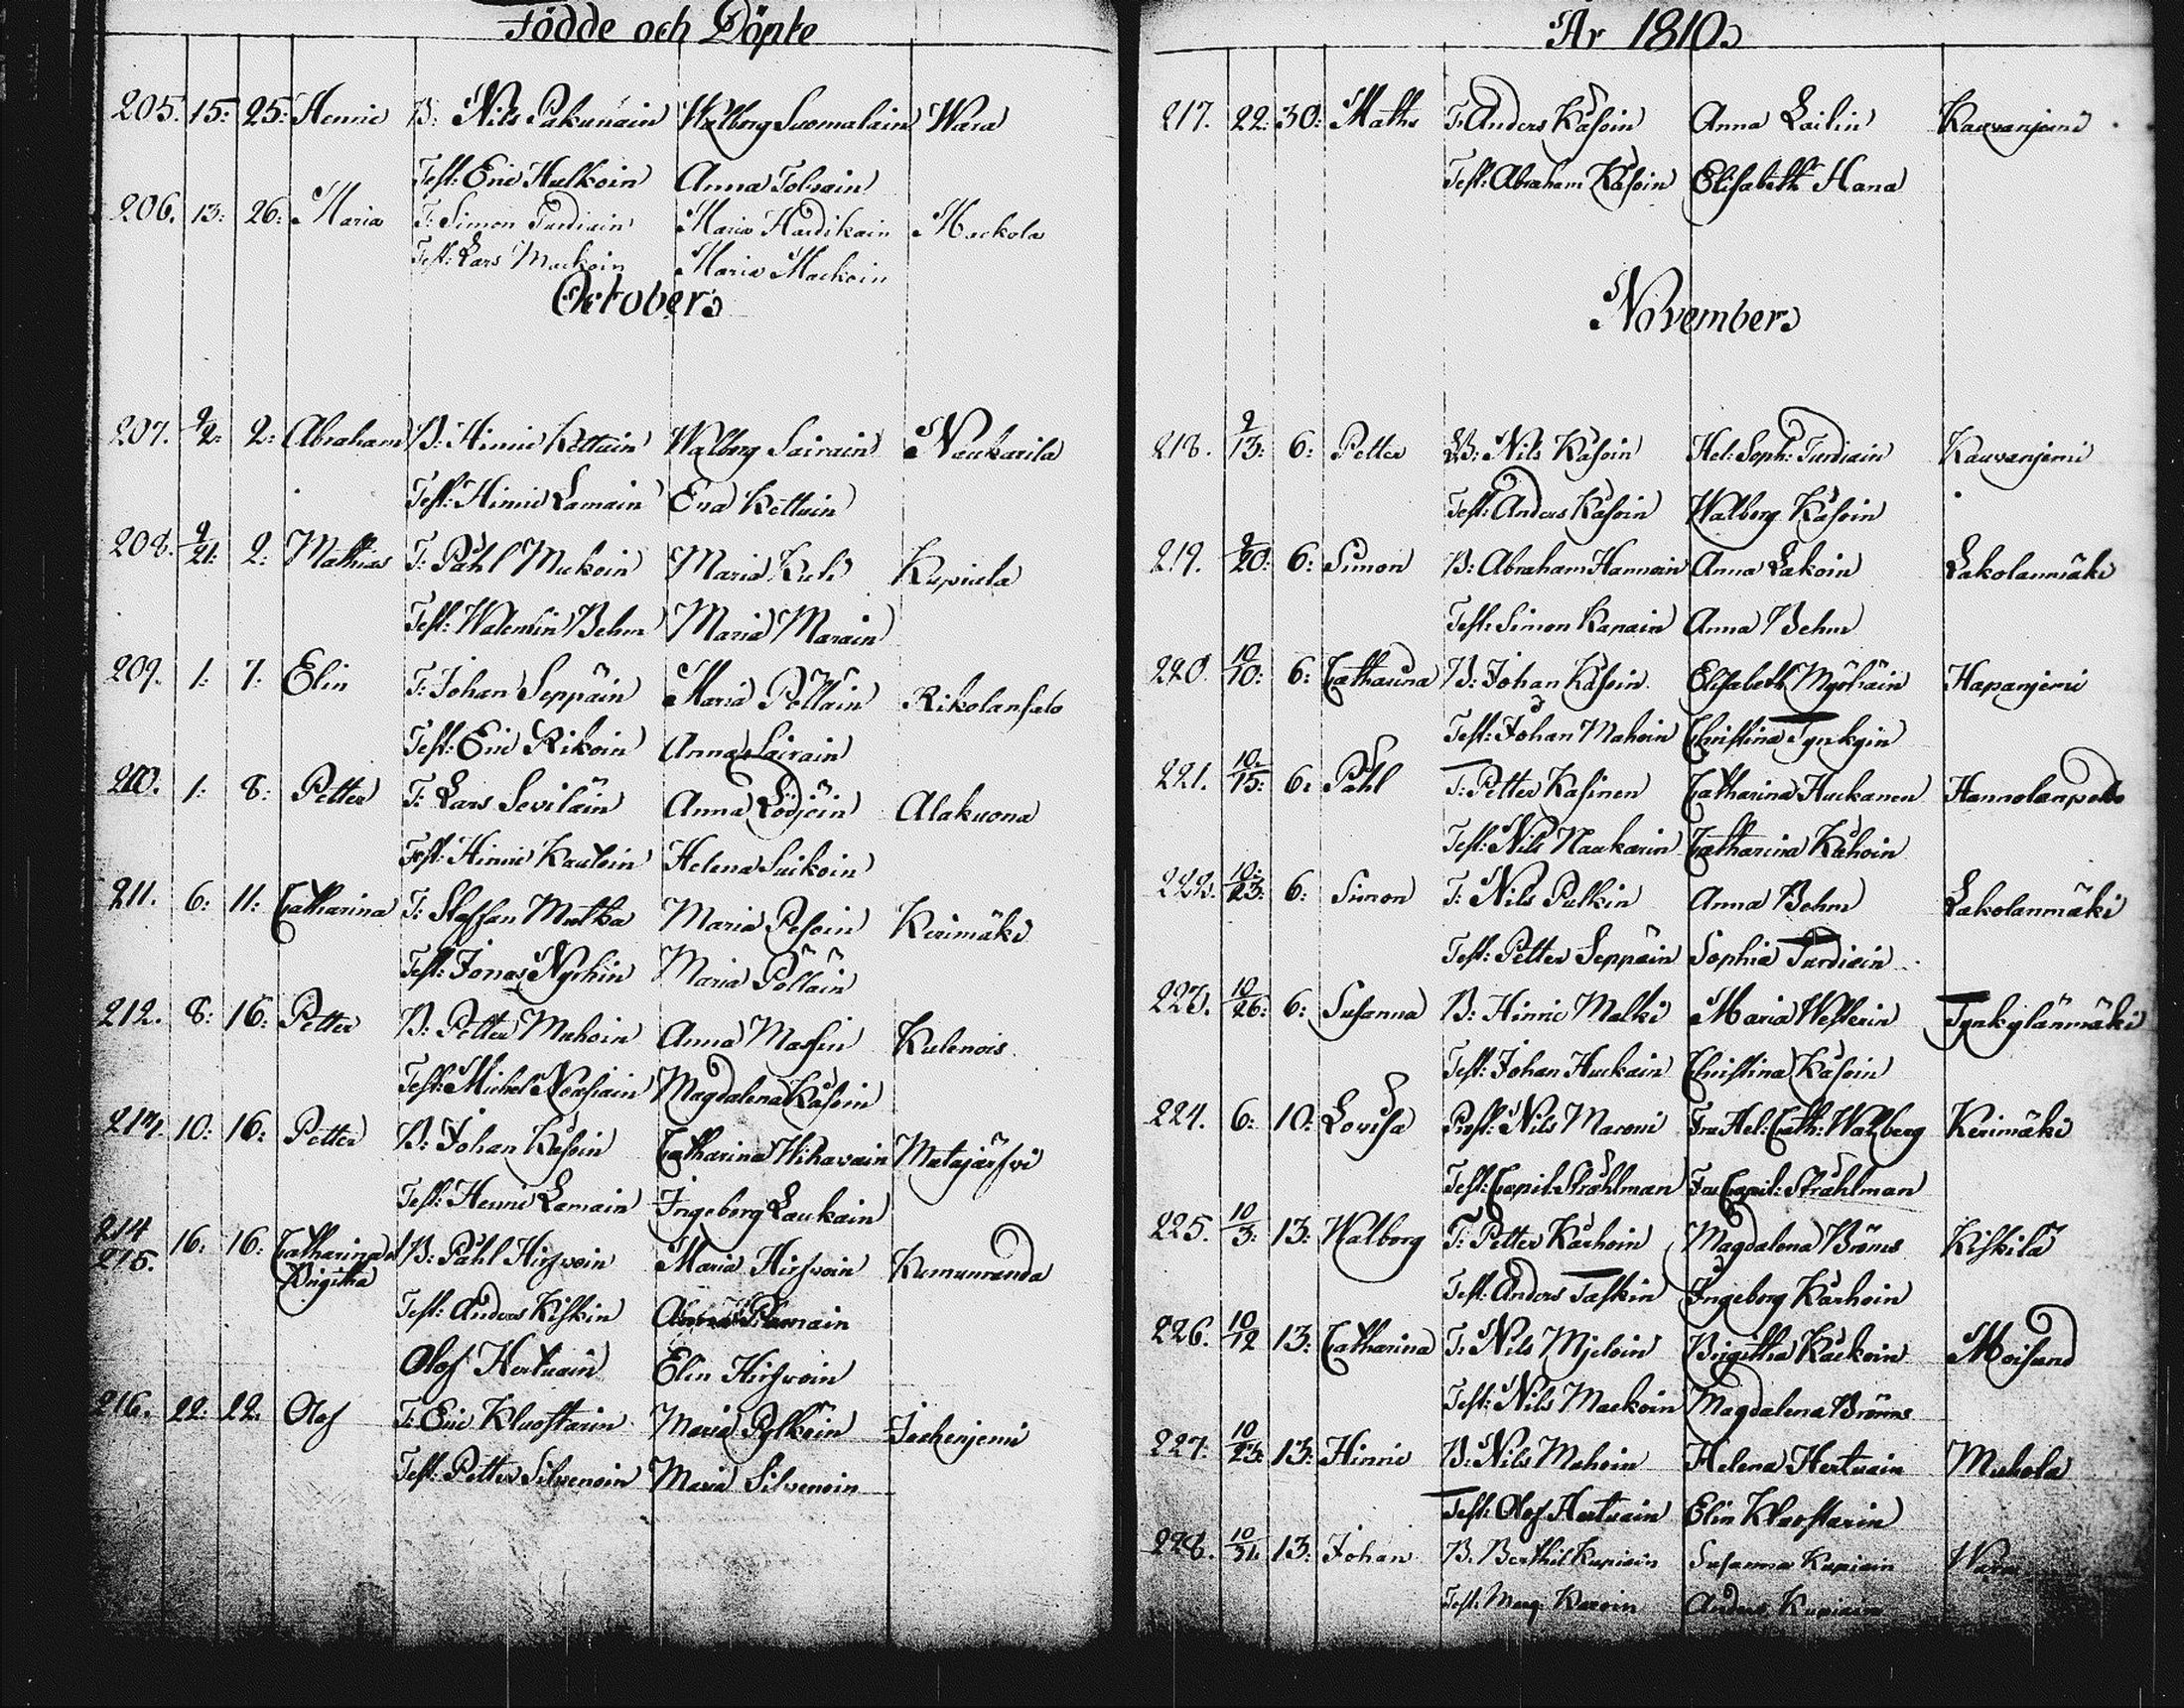 Födde och Döpte
205. 15: 25: Henric B: Nils Pakunain Walborg Suomalain Wara
Test: Eric Hulkoin Anna Tolvain
206. 13: 26: Maria T: Simon Turdiain Maria Hardikain Mackola
Test: Lars Mackoin Maria Mackoin
October
207. 9/2: 2: Abraham B: Hinric Kettuin Walborg Sairain Naukarila
Test: Hinric Lamain Eva Kettuin
208. 9/21: 2: Mathias T: Påhl Mukoin Maria Kuls Kupiala
Test: Walentin Behm Maria Marain
209. 1: 7: Elin T: Johan Seppäin Maria Pölläin Rikolansalo
Test: Eric Rikoin Anna Sairain
210. 1: 8: Petter T: Lars Seviläin Anna Lödjöin Alakuona
Test: Hinric Kautoin Helena Suikoin
211. 6: 11: Catharina T: Staffan Mutka Maria Pesoin Kerimäki
Test: Jonas Nyrhin Maria Pölläin
212. 8: 16: Petter B: Petter Muhoin Anna Massin Kulenois
Test: Michel Nousiain Magdalena Käsoin
213. 10: 16: Petter B: Johan Käsoin Catharina Wihavain Matajärfwi
Test: Henric Lamain Ingeborg Laukain
214
215. 16: 16: Catharina o Brigitha B: Påhl Hirfvoin Maria Hirfvoin Kumunranda
Test: Anders Kiskin
Olof Hertuain Elin Hirfvoin
216. 22: 22. Olof T: Eric Kluostarin Maria Pylköin Jouhenjemi
Test: Petter Silvenoin Maria Silvenoin
År 1810
217. 22: 30: Maths T: Anders Käsoin Anna Lailin Kauvanjemi
Test: Abraham Käsoin Elisabeth Hana
November
218. 9/13: 6: Petter B: Nils Käsoin Hel: Soph: Turdiain Kauvanjemi
Test: Anders Käsoin Walborg Käsoin
219. 9/20: 6: Simon B: Abraham Hannoin Anna Lakoin Lakolanmäki
Test: Simon Kanain Anna Behm
220. 10/10: 6: Catharina B: Johan Käsoin Elisabeth Myöhäin Hapanjemi
Test: Johan Muhoin Christina Tynkyin
221. 10/15: 6: Påhl T: Petter Kasinen Catharina Huckanen Hannolanpelto
Test: Nils Naukarin Catharina Kähoin
222. 10/23: 6: Simon T: Nils Pulkin Anna Behm Lakolanmäki
Test: Petter Seppäin Sophia Turdiain
223. 10/26: 6: Susanna B: Hinric Malki Maria Westerin Tynkylänmäki
Test: Johan Huckain Christina Käsoin
224. 6: 10: Lovisa Prost: Nils Maconi Fru Hel: Cath: Walberg Kerimäki
Test: Capit: Stråhlman Fru Capit: Stråhlman
225. 10/3: 13: Walborg T: Petter Karhoin Magdalena Broms Kiskilä
Test: Anders Taskin Ingeborg Karhoin
226. 10/12 13: Catharina T: Nils Mjeloin Birgitha Kackoin Moisund
Test: Nils Mackoin Magdalena Broms
227. 10/23: 13: Hinric B: Nils Muhoin Helena Hertuain Muhola
Test: Olof Hertuain Elin Kluostarin
228. 10/31. 13: Johan B. Berthil Kupiain Susanna Kupiain Wara
Test: Marg Karoin Anders Kupiain